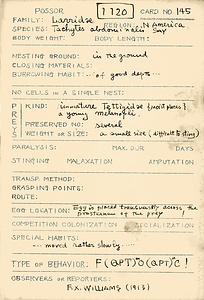 POSSOR 1120 CARD NO. 145
FAMILY: Larridae REGION: N. America
SPECIES: Tachytes abdominalis Say
BODY WEIGHT: BODY LENGTH:
NESTING GROUND: in the ground
CLOSING MATERIALS:
BURROWING HABIT: of good depth...
NO. CELLS IN A SINGLE NEST:
PREYS
KIND: immature Tettigidae
& young melanopli.
PRESERVED NO: several
WEIGHT OR SIZE: a small size (difficult to sting)
PARALYSIS: MAX. DUR. DAYS
STINGING MALAXATION AMPUTATION
TRANSP. METHOD:
GRASPING POINTS:
ROUTE:
EGG LOCATION: Egg is placed transversally across the
prosternum of the prey
COMPETITION COLONIZATION SOCIALIZATION
SPECIAL HABITS:
... moved rather slowly ....
TYPE OF BEHAVIOR:
OBSERVERS OR REPORTERS:
F.X. WILLIAMS (1913)